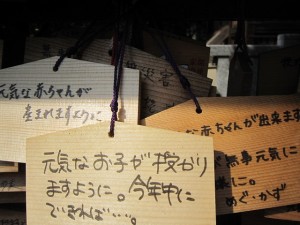 元気な赤ちゃんが
産まれますように
災害
な赤ちゃんが出来ます
無事元気に
に。
めぐ・かず
元気なお子が授がり
ますように。今年中に
できれば…。